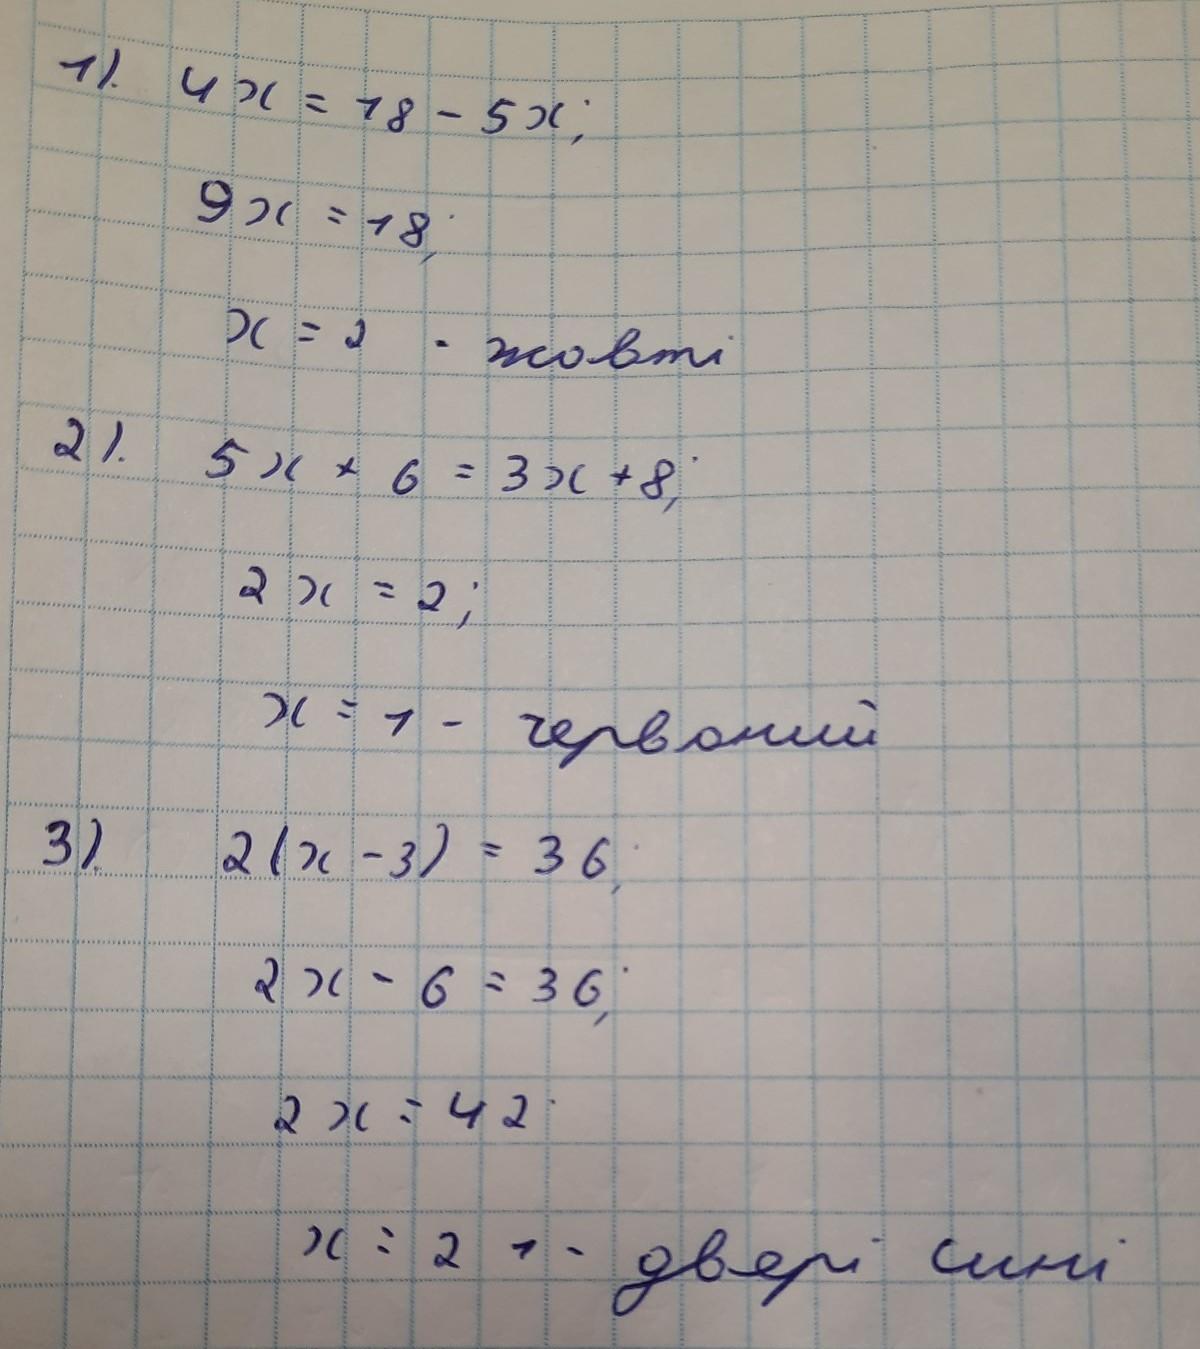 1). 4x = 18 - 5x;
9x = 18;
x = 2 - жовті
2). 5x + 6 = 3x + 8;
2x = 2;
x = 1 - червоний
3). 2(x - 3) = 36;
2x - 6 = 36;
2x = 42
x = 21 - двері сині